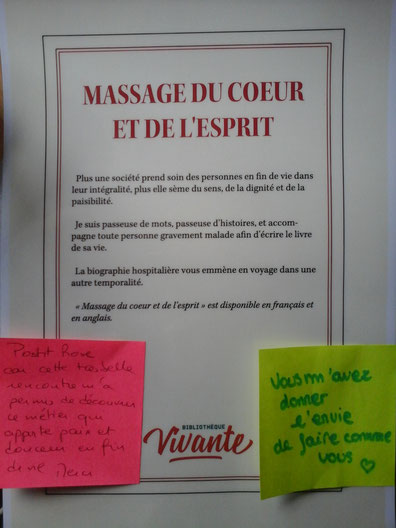 MASSAGE DU COEUR
ET DE L'ESPRIT
Plus une société prend soin des personnes en fin de vie dans
leur intégralité, plus elle sème du sens, de la dignité et de la
paisibilité.
Je suis passeuse de mots, passeuse d'histoires, et accom-
pagne toute personne gravement malade afin d'écrire le livre
de sa vie.
La biographie hospitalière vous emmène en voyage dans une
autre temporalité.
« Massage du coeur et de l'esprit » est disponible en français et
en anglais.
Postit Rose
car cette très belle
rencontre m'a
permis de découvrir
ce métier qui
apporte paix et
douceur en fin
de vie Merci
BIBLIOTHÈQUE
Vivante
Vous m'avez
donner
l'envie
de faire comme
vous